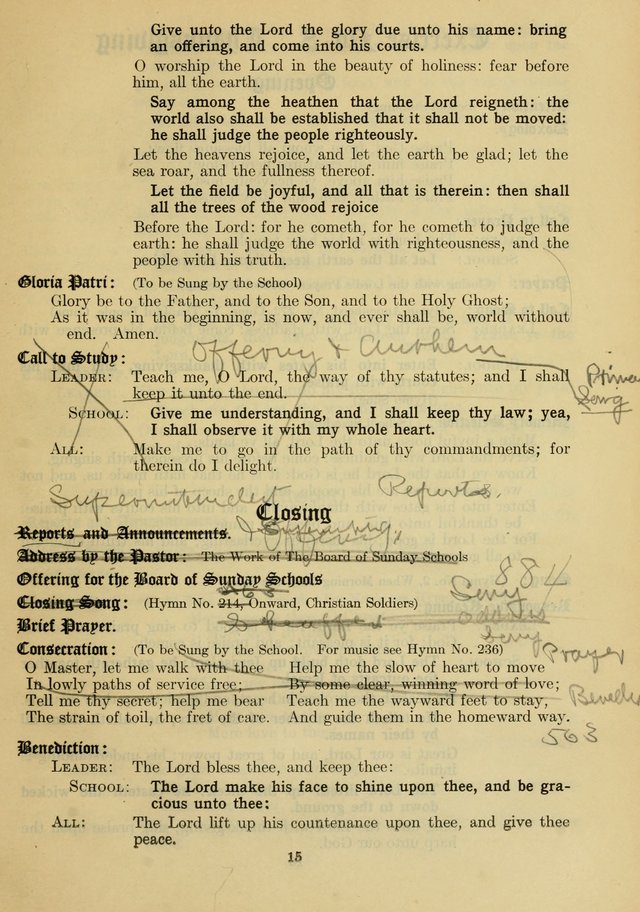 Give unto the Lord the glory due unto his name: bring
an offering, and come into his courts.
O worship the Lord in the beauty of holiness: fear before
him, all the earth.
Say among the heathen that the Lord reigneth: the
world also shall be established that it shall not be moved:
he shall judge the people righteously.
Let the heavens rejoice, and let the earth be glad; let the
sea roar, and the fullness thereof.
Let the field be joyful, and all that is therein: then shall
all the trees of the wood rejoice
Before the Lord: for he cometh, for he cometh to judge the
earth: he shall judge the world with righteousness, and the
people with his truth.
Gloria Patri: (To be Sung by the School)
Glory be to the Father, and to the Son, and to the Holy Ghost;
As it was in the beginning, is now, and ever shall be, world without
end. Amen.
Offering & Anthem
Call to Study:
Leader: Teach me, O Lord, the way of thy statutes; and I shall
keep it unto the end.
Song
School: Give me understanding, and I shall keep thy law; yea,
I shall observe it with my whole heart.
All: Make me to go in the path of thy commandments; for
therein do I delight.
Superintendent Reports.
Closing
Reports and Announcements.
Address by the Pastor: The Work of The Board of Sunday Schools
Offering for the Board of Sunday Schools
884
563
Closing Song: (Hymn No. 214, Onward, Christian Soldiers)
Song
Address
Brief Prayer.
Song
Consecration: (To be Sung by the School. For music see Hymn No. 236)
Prayer
O Master, let me walk with thee
In lowly paths of service free;
Tell me thy secret; help me bear
The strain of toil, the fret of care.
Help me the slow of heart to move
By some clear, winning word of love;
Teach me the wayward feet to stay,
And guide them in the homeward way.
563
Benediction:
Leader: The Lord bless thee, and keep thee:
School: The Lord make his face to shine upon thee, and be gra-
cious unto thee:
All: The Lord lift up his countenance upon thee, and give thee
peace.
15